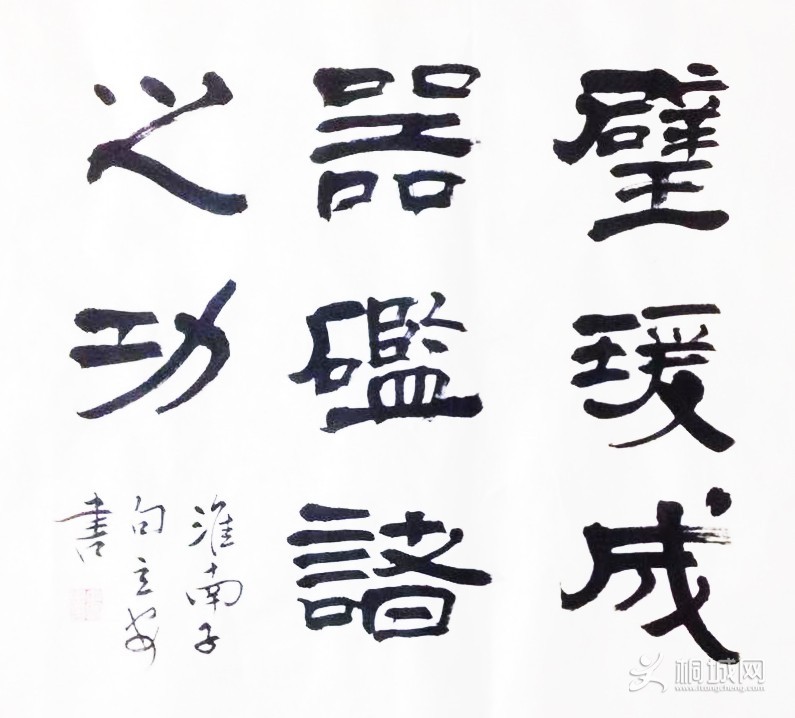 璧瑗成
器礛諸
之功
淮南子
句立安
書
桐城网
www.itongcheng.com